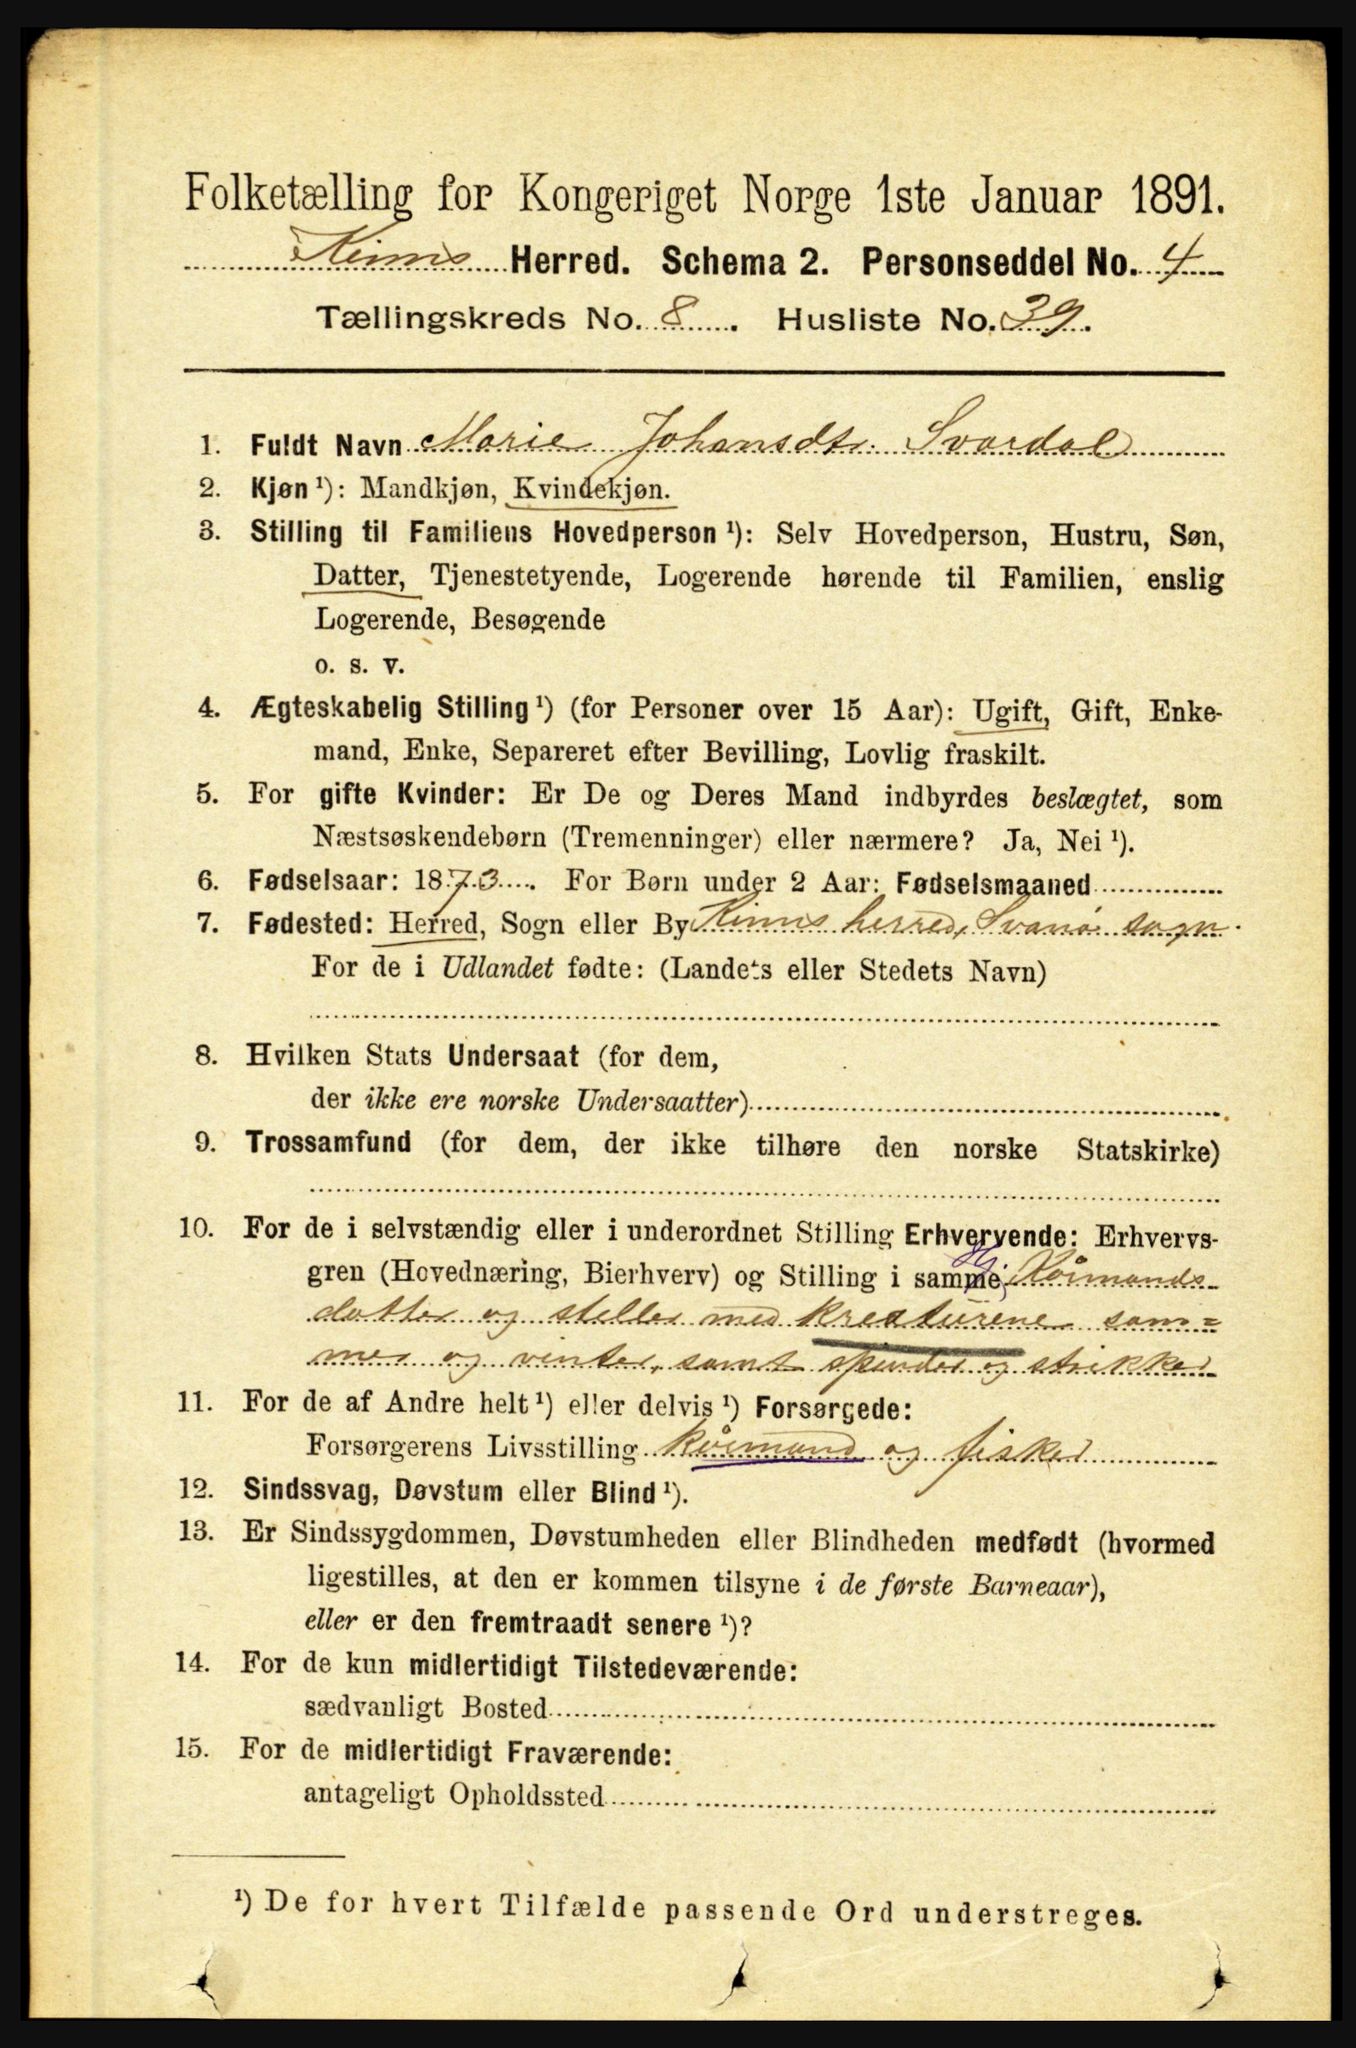 Folketælling for Kongeriget Norge 1ste Januar 1891.
Kinns Herred. Schema 2. Personseddel No. 4
Tællingskreds No. 8. Husliste No. 39.
1. Fuldt Navn Marie Johansdtr. Svardal
2. Kjøn ¹): Mandkjøn, Kvindekjøn.
3. Stilling til Familiens Hovedperson ¹): Selv Hovedperson, Hustru, Søn,
Datter, Tjenestetyende, Logerende hørende til Familien, enslig
Logerende, Besøgende
o. s. v.
4. Ægteskabelig Stilling ¹) (for Personer over 15 Aar): Ugift, Gift, Enke-
mand, Enke, Separeret efter Bevilling, Lovlig fraskilt.
5. For gifte Kvinder: Er De og Deres Mand indbyrdes beslægtet, som
Næstsøskendebørn (Tremenninger) eller nærmere? Ja, Nei ¹).
6. Fødselsaar: 1873. For Børn under 2 Aar: Fødselsmaaned
7. Fødested: Herred, Sogn eller By Kinns herred, Svanø sogn.
For de i Udlandet fødte: (Landets eller Stedets Navn)
8. Hvilken Stats Undersaat (for dem,
der ikke ere norske Undersaatter)
9. Trossamfund (for dem, der ikke tilhøre den norske Statskirke)
10. For de i selvstændig eller i underordnet Stilling Erhvervende: Erhvervs-
gren (Hovednæring, Bierhverv) og Stilling i samme, Kårmands
datter og steller med kreaturene som=
mer og vinter, samt spinder og strikker
11. For de af Andre helt ¹) eller delvis ¹) Forsørgede:
Forsørgerens Livsstilling kårmand og fisker
12. Sindssvag, Døvstum eller Blind ¹).
13. Er Sindssygdommen, Døvstumheden eller Blindheden medfødt (hvormed
ligestilles, at den er kommen tilsyne i de første Barneaar),
eller er den fremtraadt senere ¹)?
14. For de kun midlertidigt Tilstedeværende:
sædvanligt Bosted
15. For de midlertidigt Fraværende:
antageligt Opholdssted
¹) De for hvert Tilfælde passende Ord understreges.